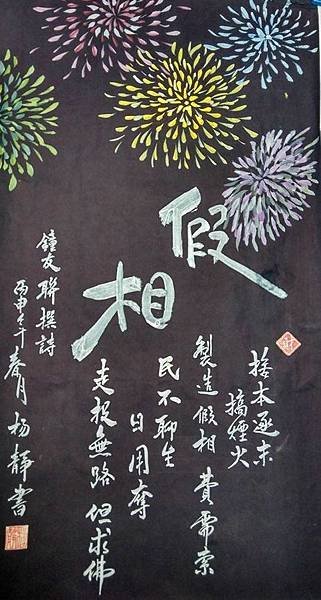 假相
捨本逐末
搞煙火
製造假相 費需索
民不聊生
日用奪
走投無路 但求佛
鐘友聯撰詩
丙申年春月 楊靜書